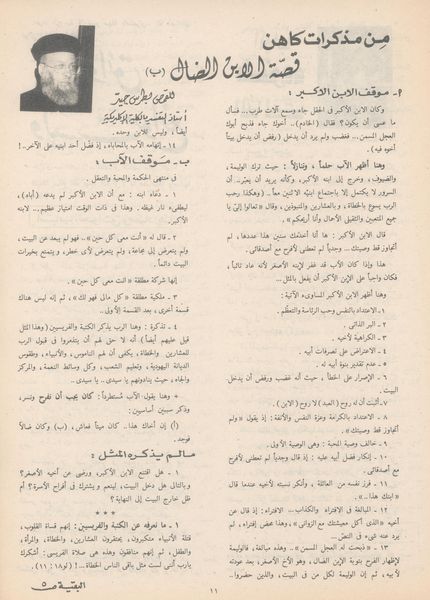 من مذكرات كاهن
قصّة الابن الضال (ب)
للقمص بطرس جيد
أستاذ التفسير بالكلية الإكليريكية
٢- موقف الابن الأكبر :
وكان الابن الأكبر في الحقل جاء وسمع آلات طرب... فسأل
ما عسى أن يكون؟ فقال (الخادم).. أخوك جاء فذبح أبوك
العجل المسمن... فغضب ولم يرد أن يدخل (رفض أن يدخل بيتاً
أخوه فيه).
وهنا أظهر الأب حلماً، وتنازلاً : حيث ترك الوليمة،
والضيوف، وخرج إلى ابنه الأكبر، وكأنه يريد أن يعبر.. أن
السرور لا يكتمل إلا باجتماع ابنيه الاثنين معاً.. (وهكذا رحب
الرب يسوع بالخطاة، وبالعشارين والمنبوذين، وقال «تعالوا إلىّ يا
جميع المتعبين والثقيلي الأحمال وأنا أريحكم».
قال الابن الأكبر : ها أنا أخدمك سنين هذا عددها، لم
أتجاوز قط وصيتك... وجدياً لم تعطني لأفرح مع أصدقائي.
هذا وإذا كان الأب قد غفر لإبنه الأصغر لأنه عاد تائباً،
فكان واجباً على الإبن الأكبر أن يفعل بالمثل...
وهنا أظهر الابن الأكبر المساوىء الآتية :
١- الاعتداد بالنفس وحب الرئاسة والتعظم.
٢- البر الذاتي.
٣- الكراهية لأخيه.
٤- الاعتراض على تصرفات أبيه.
٥- عدم تقدير بنوة أبيه له.
٦- الإصرار على الخطأ، حيث أنه غضب ورفض أن يدخل
البيت.
٧- أثبت أن له روح (العبد) لا روح (الابن).
٨- الاعتداد بالكرامة وعزة النفس والأنفة : إذ يقول «ولم
أتجاوز قط وصيتك».
٩- خالف وصية المحبة : وهي الوصية الأولى.
١٠- إنكار فضل أبيه عليه : إذ قال وجدياً لم تعطني لأفرح
مع أصدقائي.
١١- فرز نفسه من العائلة، وأنكر نسبته لأخيه عندما قال
«ابنك هذا»..
١٢- المبالغة في الافتراء والكذاب.. الافتراء : إذ قال عن
أخيه «الذى أكل معيشتك مع الزواني»، وهذا محض إفتراء، لم
يرد عنه شىء في النص...
١٣- «ذبحت له العجل المسمن» وهذه مبالغة، فالوليمة
لإظهار الفرح بتوبة الإبن الضال، وهو الأخ الأصغر، بعد عودته
لأبيه، ثم إن الوليمة لكل من في البيت، والذين حضروا...
أيضاً، وليس للابن وحده.
١٤- إتهامه الأب بالمحاباه، إذ فضل أحد ابنيه على الآخر..!
ب- موقف الأب :
في منتهى الحكمة والمحبة والتعقل.
١- دعاء ابنه : مع أن الابن الأكبر لم يدعه (أباه)،
ليطفىء نار غيظه، وهذا في ذات الوقت امتياز عظيم... لابنه
الأكبر.
٢- قال له «أنت معي كل حين».. فهو لم يبعد عن البيت،
ولم يتعرض إلى مجاعة، ولم يتعرض لأى خطر، ويتمتع بخيرات
البيت دائماً.
إنها شركة مطلقة «أنت معي كل حين».
٣- ملكية مطلقة «كل مالى فهو لك»، ثم إنه ليس هناك
قسمة أخرى، بعد القسمة الأولى.
٤- تذكرة : وهنا الرب يذكر الكتبة والفريسيين (وهذا المثل
قيل أيضاً لأجلهم) أنه لا حق لهم أن يتذمروا في قبول الرب
للعشارين والخطاة، يكفى أن لهم الناموس، والأنبياء، وطقوس
الديانة اليهودية، وتعليم الشعب، وكل وسائط النعمة، والمركز
والجاه، حيث ينادونهم يا سيدى.. يا سيدى.
* وهنا يقول الأب مستطرداً : كان يجب أن نفرح ونسر،
وذكر سببين أساسيين :
(أ) إن أخاك هذا.. كان ميتاً فعاش، (ب) وكان ضالاً
فوجد.
مالم يذكره المثل :
١- هل اقتنع الابن الأكبر، ورضى عن أخيه الأصغر؟
وبالتالي هل دخل البيت، لينعم ويشترك في أفراح الأسرة؟ أم
ظل خارج البيت إلى النهاية؟
* * *
١- ما نعرفه عن الكتبة والفريسيين : إنهم قساة القلوب،
قتلة الأنبياء متكبرون، يحتقرون العشارين، والخطاة، والمرأة،
والطفل، ثم إنهم منافقون وهذه هى صلاة الفريسى : أشكرك
يارب أننى لست مثل باقى الناس الخطاة...! (لو١٨ : ١١)
البقية ص٥
١١